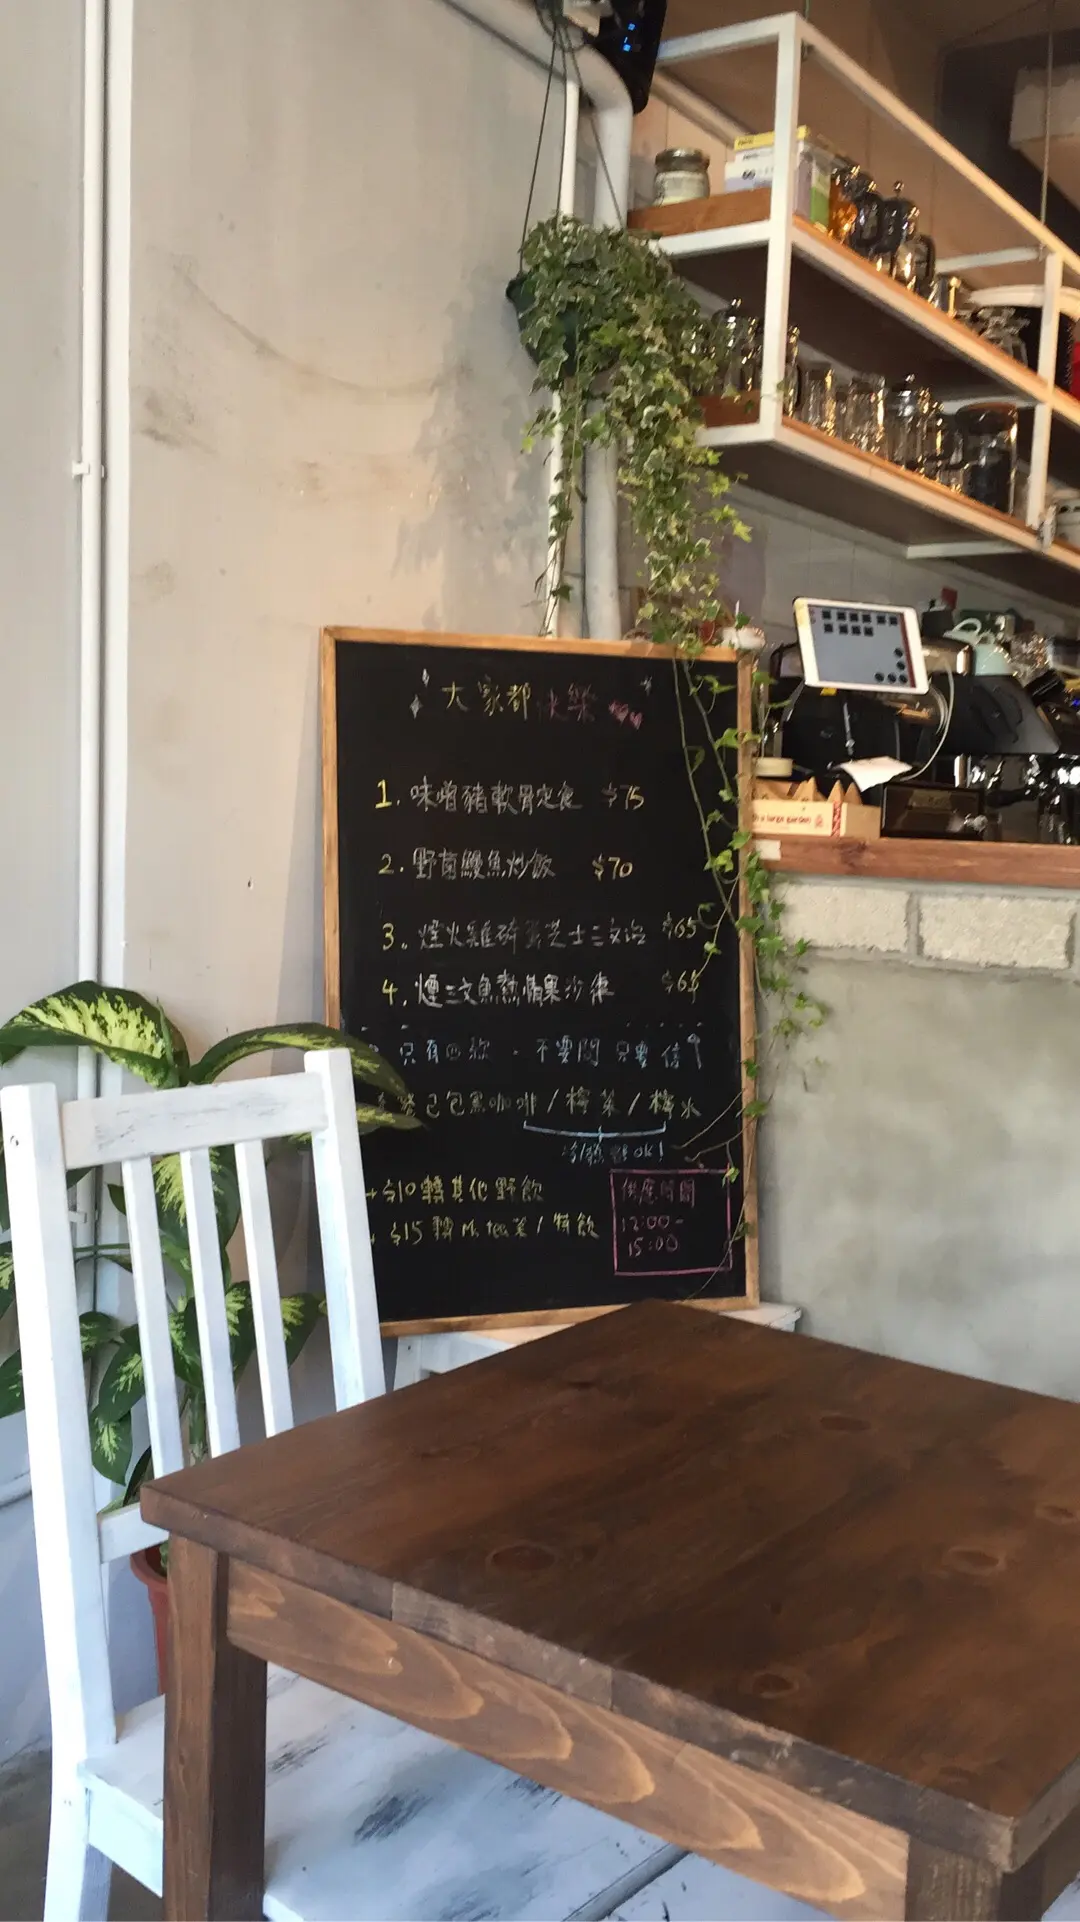 大家都快樂
1. 味噌豬軟骨定食 $75
2. 野菌鰻魚炒飯 $70
3. 煙火雞碎蛋芝士三文治 $65
4. 煙三文魚熱情果沙律 $65
只有四款 · 不要問 只要信
已包黑咖啡 / 檸茶 / 檸水
冷/熱都ok!
+$10轉其他野飲
+$15轉 Mr. tea茶 / 特飲
供應時間
12:00-
15:00
h a large garden